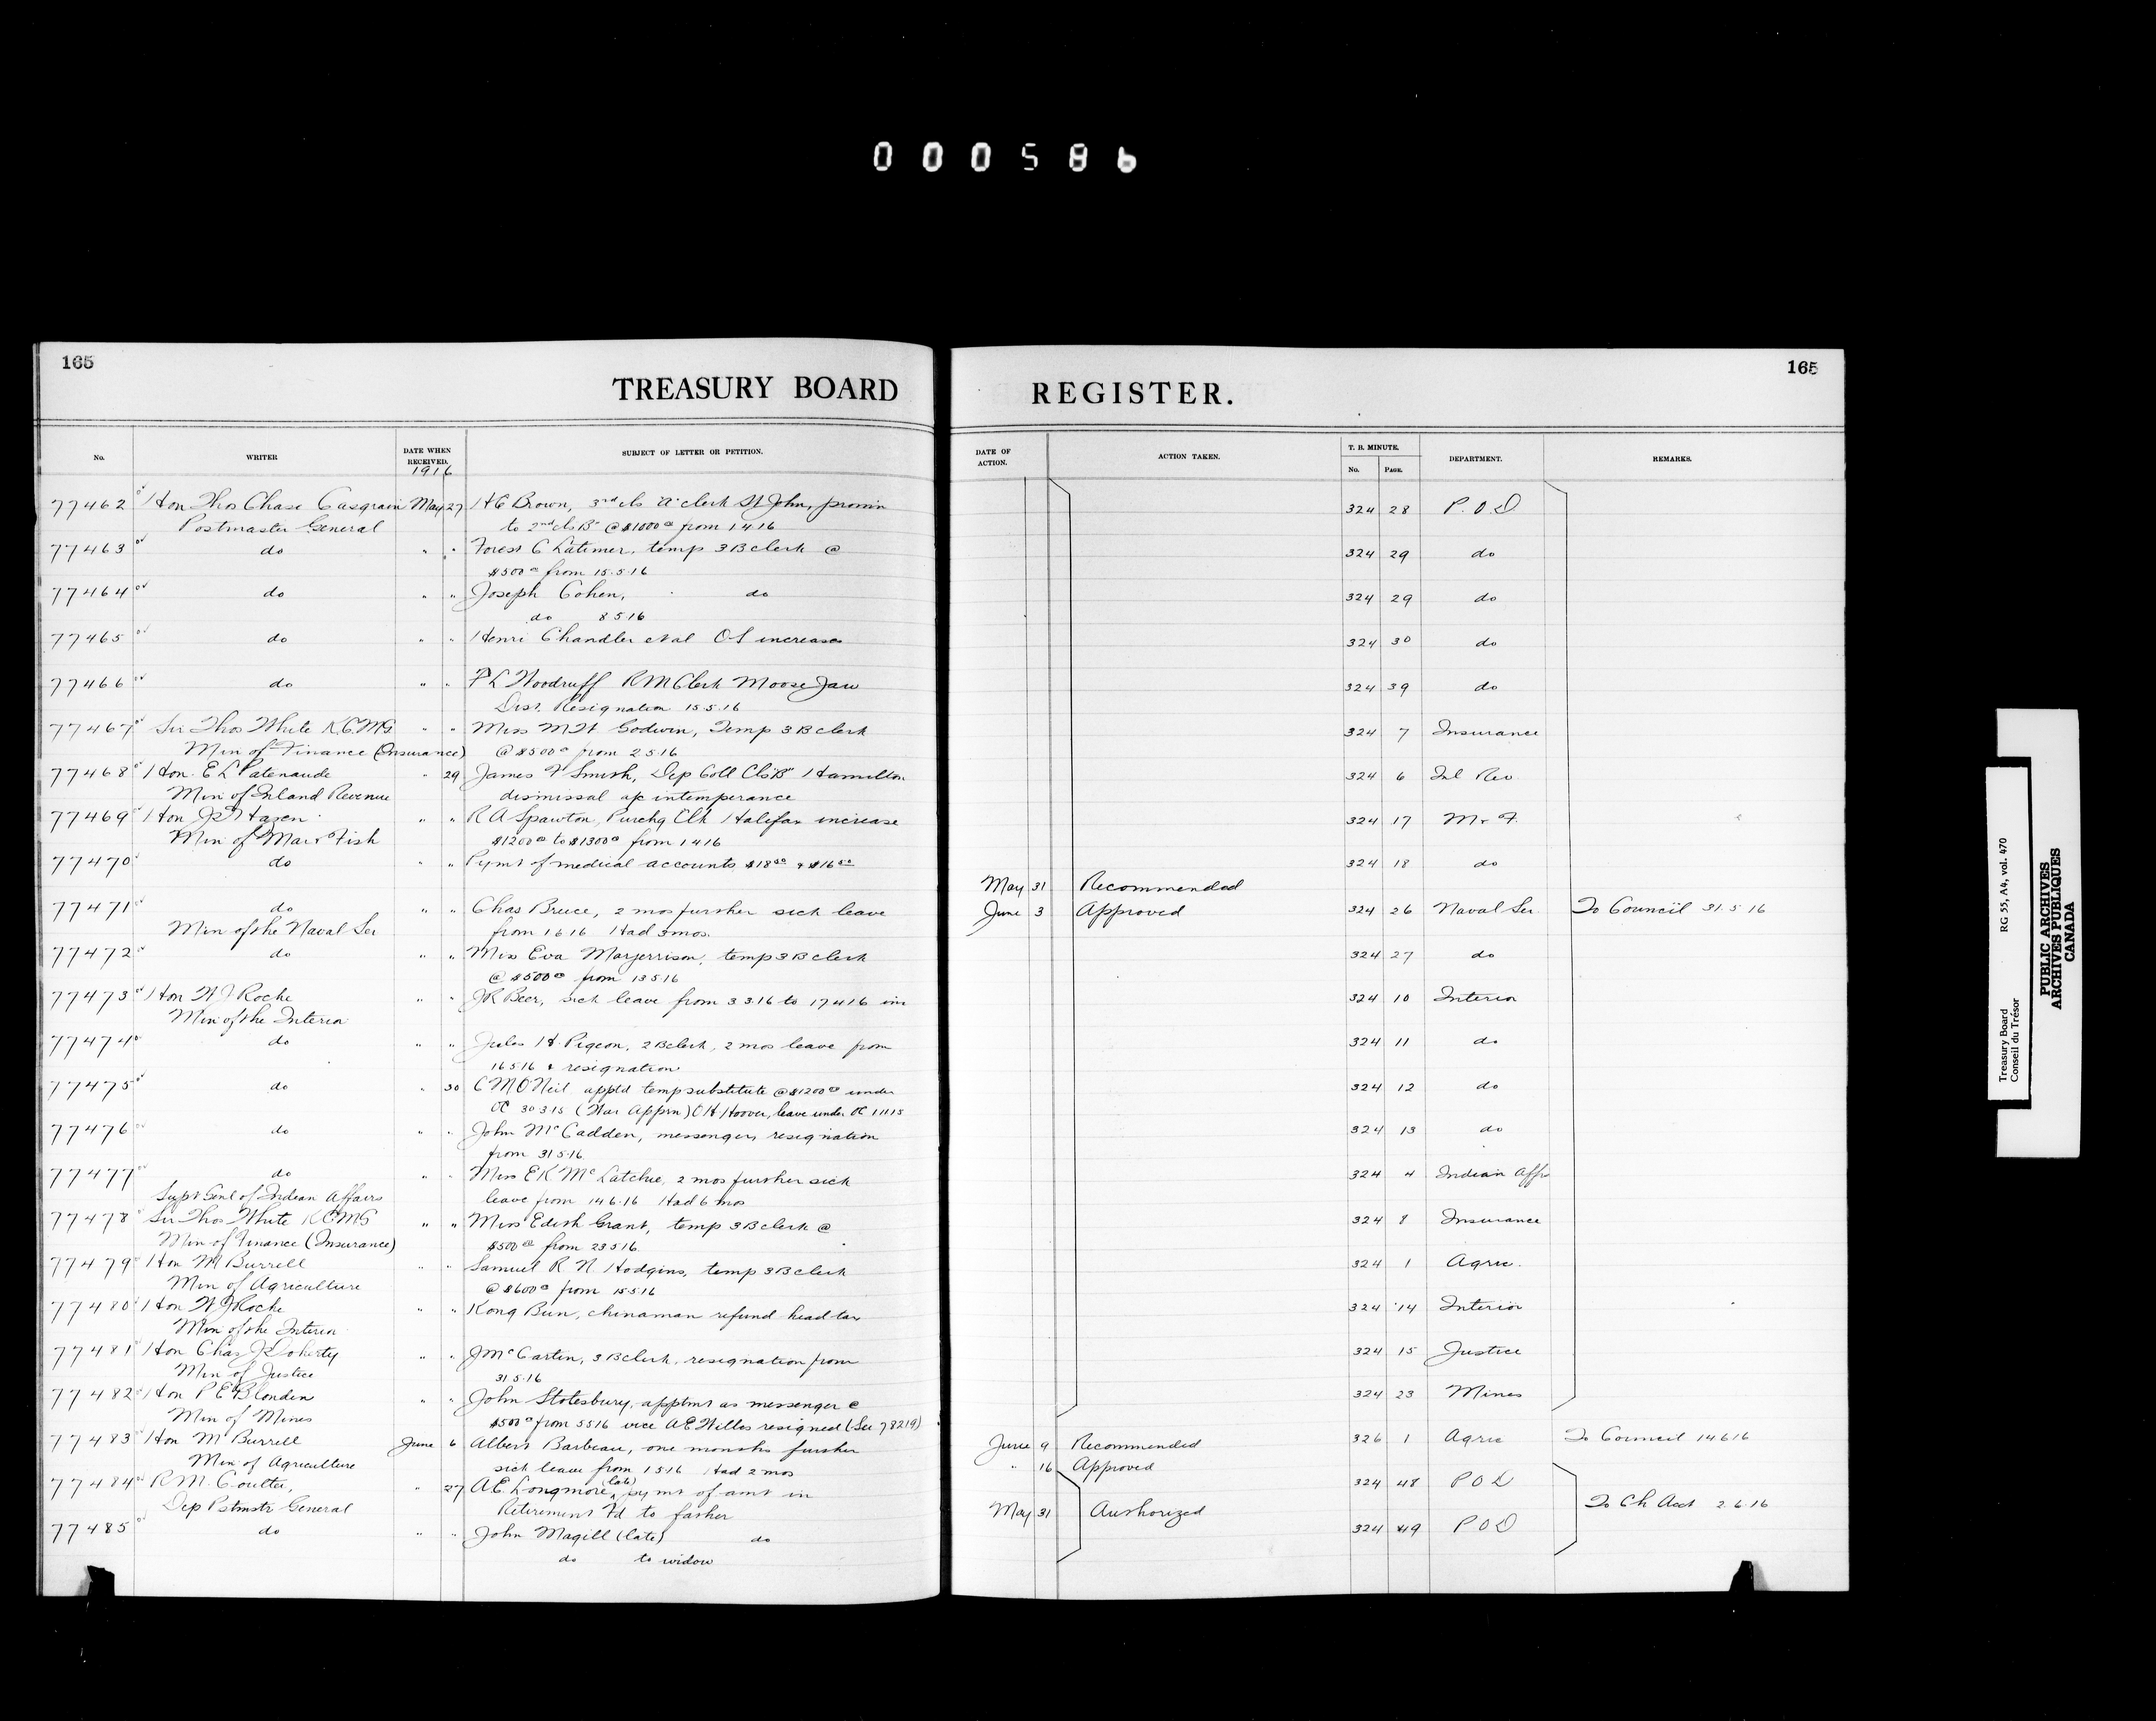 000586
165
TREASURY BOARD
No.
WRITER
DATE WHEN RECEIVED.
1916
SUBJECT OF LETTER OR PETITION.
77462 Hon Thos Chase Casgrain May 27 H C Brown, 3rd cls "A" clerk St John, promn
Postmaster General to 2nd cls B" @ $1000 00 from 1 4 16
77463 do " " Forest C Latimer, temp 3 B clerk @
$500 00 from 15.5.16
77464 do " " Joseph Cohen, do
do 8 5 16
77465 do " " Henri Chandler et al O S increases
77466 do " " F L Woodruff R M Clerk Moose Jaw
Dist. Resignation 15.5.16
77467 Sir Thos White K.C.M.G " " Miss M H Godwin, Temp 3 B clerk
Min of Finance (Insurance) @ $500 00 from 2 5 16
77468 Hon. E L Patenaude " 29 James F Smith, Dep Coll Cls "B" Hamilton
Min of Inland Revenue dismissal a/c intemperance
77469 Hon J D Hazen " " R A Spawton, Purchg Clk Halifax increase
Min of Mar & Fish $1200 00 to $1300 00 from 1 4 16
77470 do " " Pymt of medical accounts $18 50 & $16 50
77471 do " " Chas Bruce, 2 mos further sick leave
Min of the Naval Ser from 1 6 16 Had 3 mos.
77472 do " " Miss Eva Marjerrison, temp 3 B clerk
@ $500 00 from 13 5 16
77473 Hon W J Roche " " J R Beer, sick leave from 3 3.16 to 17 4 16 inc
Min of the Interior
77474 do " " Jules H. Pigeon, 2 B clerk, 2 mos leave from
16 5 16 & resignation
77475 do " 30 C M O'Neil apptd temp substitute @ $1200 00 under
OC 30 3 15 (War Apprn) O H Hoover, leave under OC 1 11 15
77476 do " " John McCadden, messenger, resignation
from 31 5 16.
77477 do " " Miss E K McLatchie, 2 mos further sick
Supt Genl of Indian Affairs leave from 14 6.16 Had 6 mos
77478 Sir Thos White K C M G " " Miss Edith Grant, temp 3 B clerk @
Min of Finance (Insurance) $500 00 from 23 5 16.
77479 Hon M Burrell " " Samuel R N. Hodgins, temp 3 B clerk
Min of Agriculture @ $600 00 from 15 5 16
77480 Hon W J Roche " " Kong Bun, chinaman refund head tax
Min of the Interior
77481 Hon Chas J Doherty " " J McCartin, 3 B clerk, resignation from
Min of Justice 31 5.16
77482 Hon P E Blondin " " John Stotesbury, apptmt as messenger @
Min of Mines $500 00 from 5 5 16 vice A E Willes resigned (See 78219)
77483 Hon M Burrell June 6 Albert Barbeau, one months further
Min of Agriculture sick leave from 1 5 16 Had 2 mos
77484 R M. Coulter, " 27 A.E. Longmore (late), pymt of amt in
Dep Pstmstr General Retirement Fd to father
77485 do " " John Magill (late) do
do to widow
165
REGISTER.
DATE OF ACTION.
ACTION TAKEN.
T. B. MINUTE.
No. PAGE.
DEPARTMENT.
REMARKS.
324 28 P.O.D
324 29 do
324 29 do
324 30 do
324 39 do
324 7 Insurance
324 6 Inl Rev
324 17 M & F.
324 18 do
May 31 Recommended
June 3 Approved 324 26 Naval Ser. To Council 31.5 16
324 27 do
324 10 Interior
324 11 do
324 12 do
324 13 do
324 4 Indian Affrs
324 8 Insurance
324 1 Agric.
324 14 Interior
324 15 Justice
324 23 Mines
June 9 Recommended 326 1 Agric To Council 14 6 16
" 16 Approved
324 48 P O D
May 31 Authorized To Ch Acct 2.6.16
324 49 P O D
Treasury Board
Conseil du Trésor
RG 55, A4, vol. 470
PUBLIC ARCHIVES
ARCHIVES PUBLIQUES
CANADA